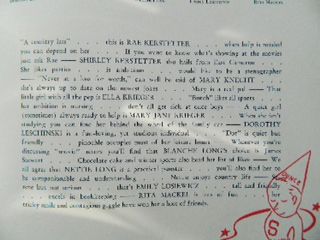 "A country lass" . . . this is RAE KERSTETTER . . . when help is needed
you can depend on her . . . If you want to know what's showing at the movies
just ask Rae — SHIRLEY KERSTETTER she hails from East Cameron . . .
She likes parties . . . is ambitious . . . would like to be a stenographer
— "Never at a loss for words," can well be said of MARY KNECHT . . .
she's always up to date on the newest jokes . . . Mary is a real pal — That
little girl with all the pep is ELLA KRIEGER . . . "Beech" likes all sports . . .
her ambition is nursing . . . don't all get sick at once boys — A quiet girl
(sometimes) always ready to help is MARY JANE KRIEGER . . . When she isn't
studying you can find her behind the wheel of the family car — DOROTHY
LESCHINSKI is a fun-loving, yet studious individual . . . "Dot" is quiet but
friendly . . . pinochle occupies most of her leisure hours — Whenever you're
discussing "movie" stars you'll find that BLANCHE LONG'S choice is James
Stewart . . . Chocolate cake and winter sports also head her list of likes — We
all agree that NETTIE LONG is a practical . . . you'll also find her to
be companionable and understanding — Never serious
now but not serious . . . that's EMILY LOSIEWICZ . . . tall and friendly
. . . excels in bookkeeping — RITA MACKEL is fun . . . her
tricky smile and contagious giggle have won her a host of friends.
S